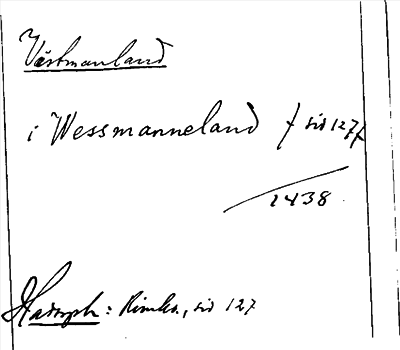 Västmanland
i Wessmanneland / sid 127 /
1438
Hadorph: Rimkr., sid 127